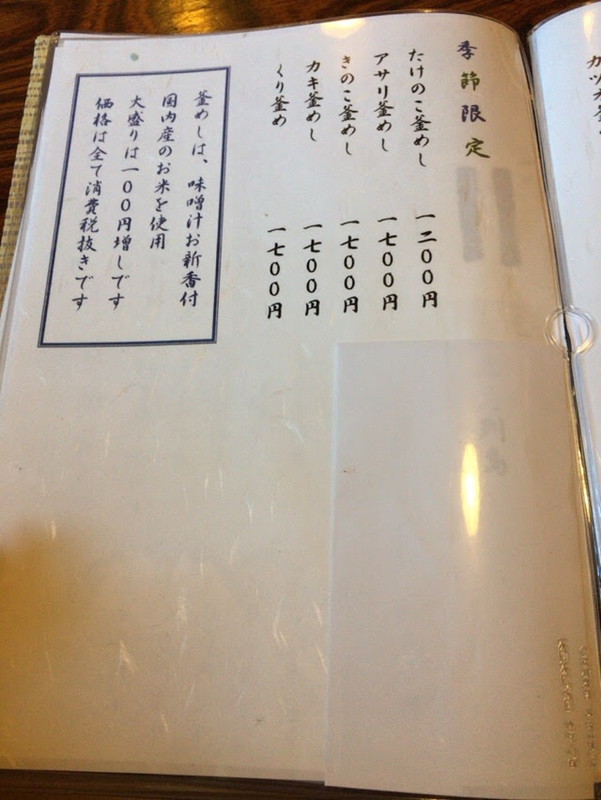 季節限定
たけのこ釜めし 一二〇〇円
アサリ釜めし 一七〇〇円
きのこ釜めし 一七〇〇円
カキ釜めし 一七〇〇円
くり釜め 一七〇〇円
釜めしは、味噌汁お新香付
国内産のお米を使用
大盛りは一〇〇円増しです
価格は全て消費税抜きです